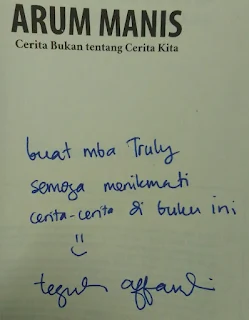 ARUM MANIS
Cerita Bukan tentang Cerita Kita
buat mba Truly
semoga menikmati
cerita-cerita di buku ini
teguh affandi